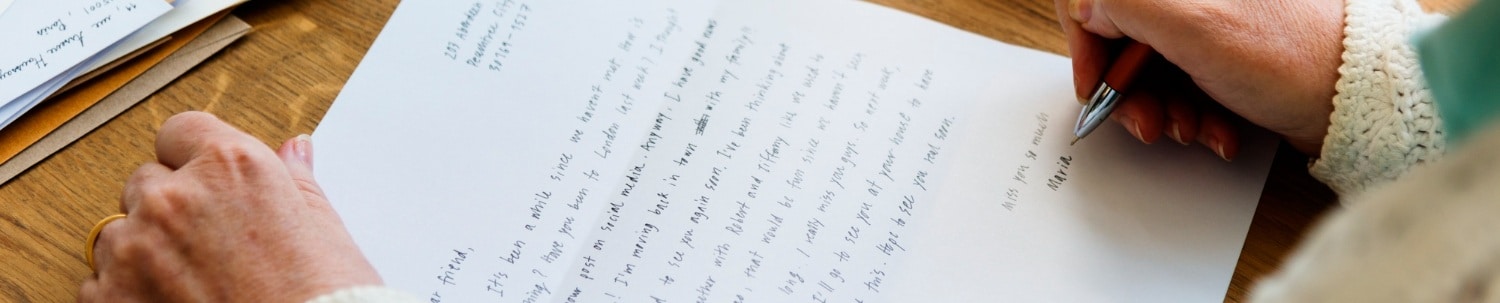 rue
Paris
253 Aberdeen
Peachtree City
ar friend,
It's been a while since we haven't met. How is
thing? Have you been to London last week? I thought
our post on social media. Anyway, I have good news
! I'm moving back in town with my family
d to see you again soon. I've been thinking about
other with Robert and Tiffany like we used to
o, that would be fun since we haven't been
long. I really miss you guys. So next
I'll go to see you at your house to have
e this. Hope to see you real soon.
Miss you so much
Maria